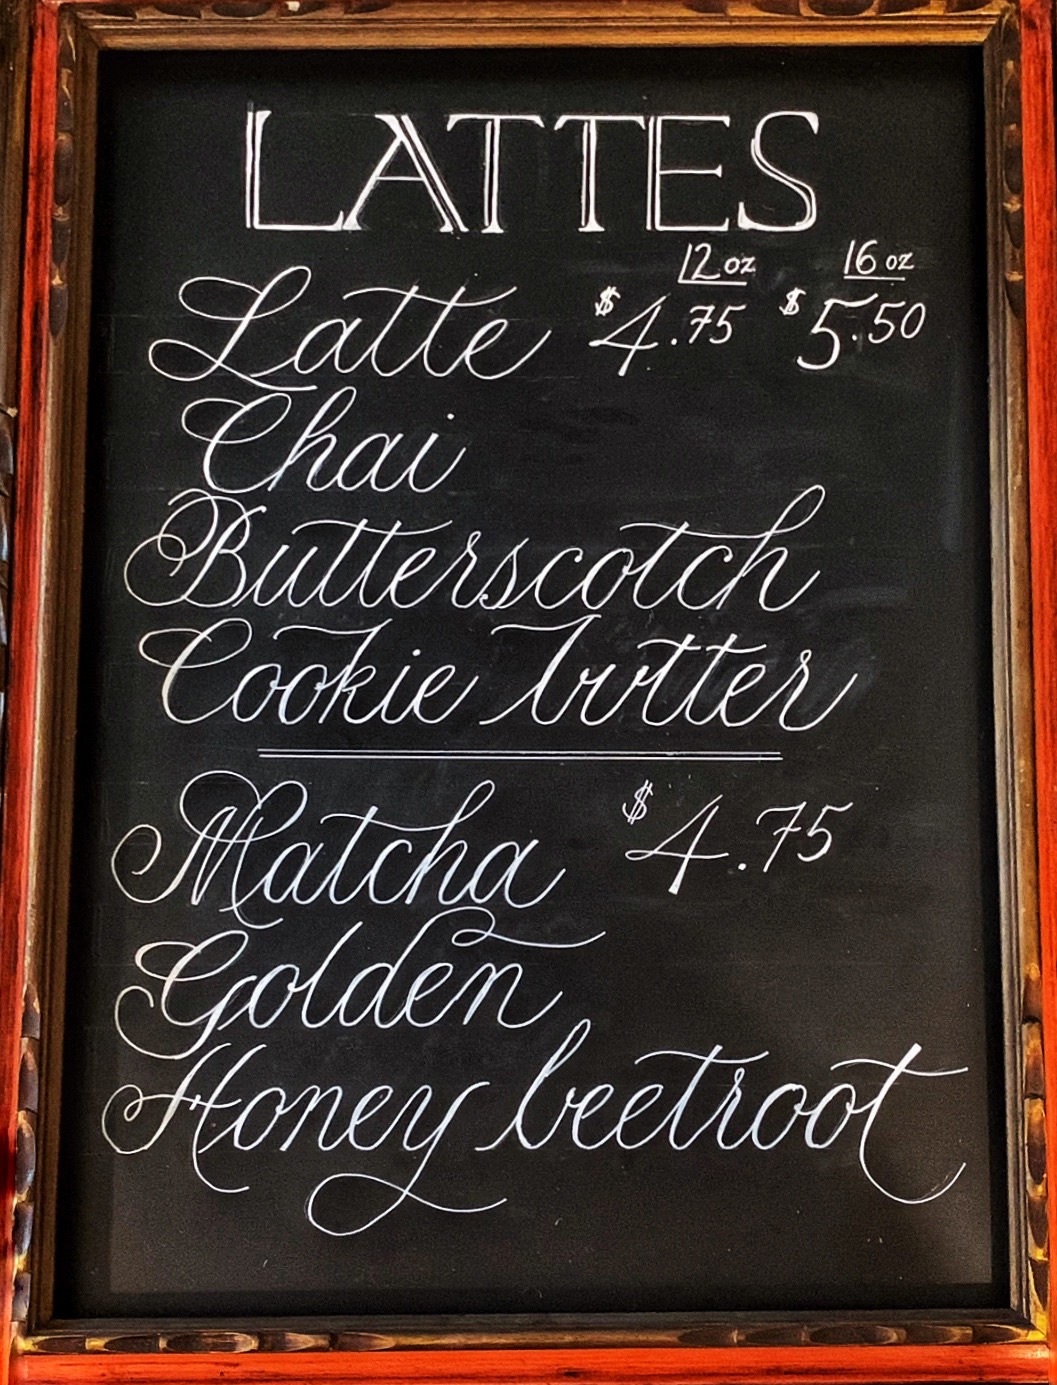 LATTES
12 oz 16 oz
Latte $4.75 $5.50
Chai
Butterscotch
Cookie butter
Matcha $4.75
Golden
Honey beetroot